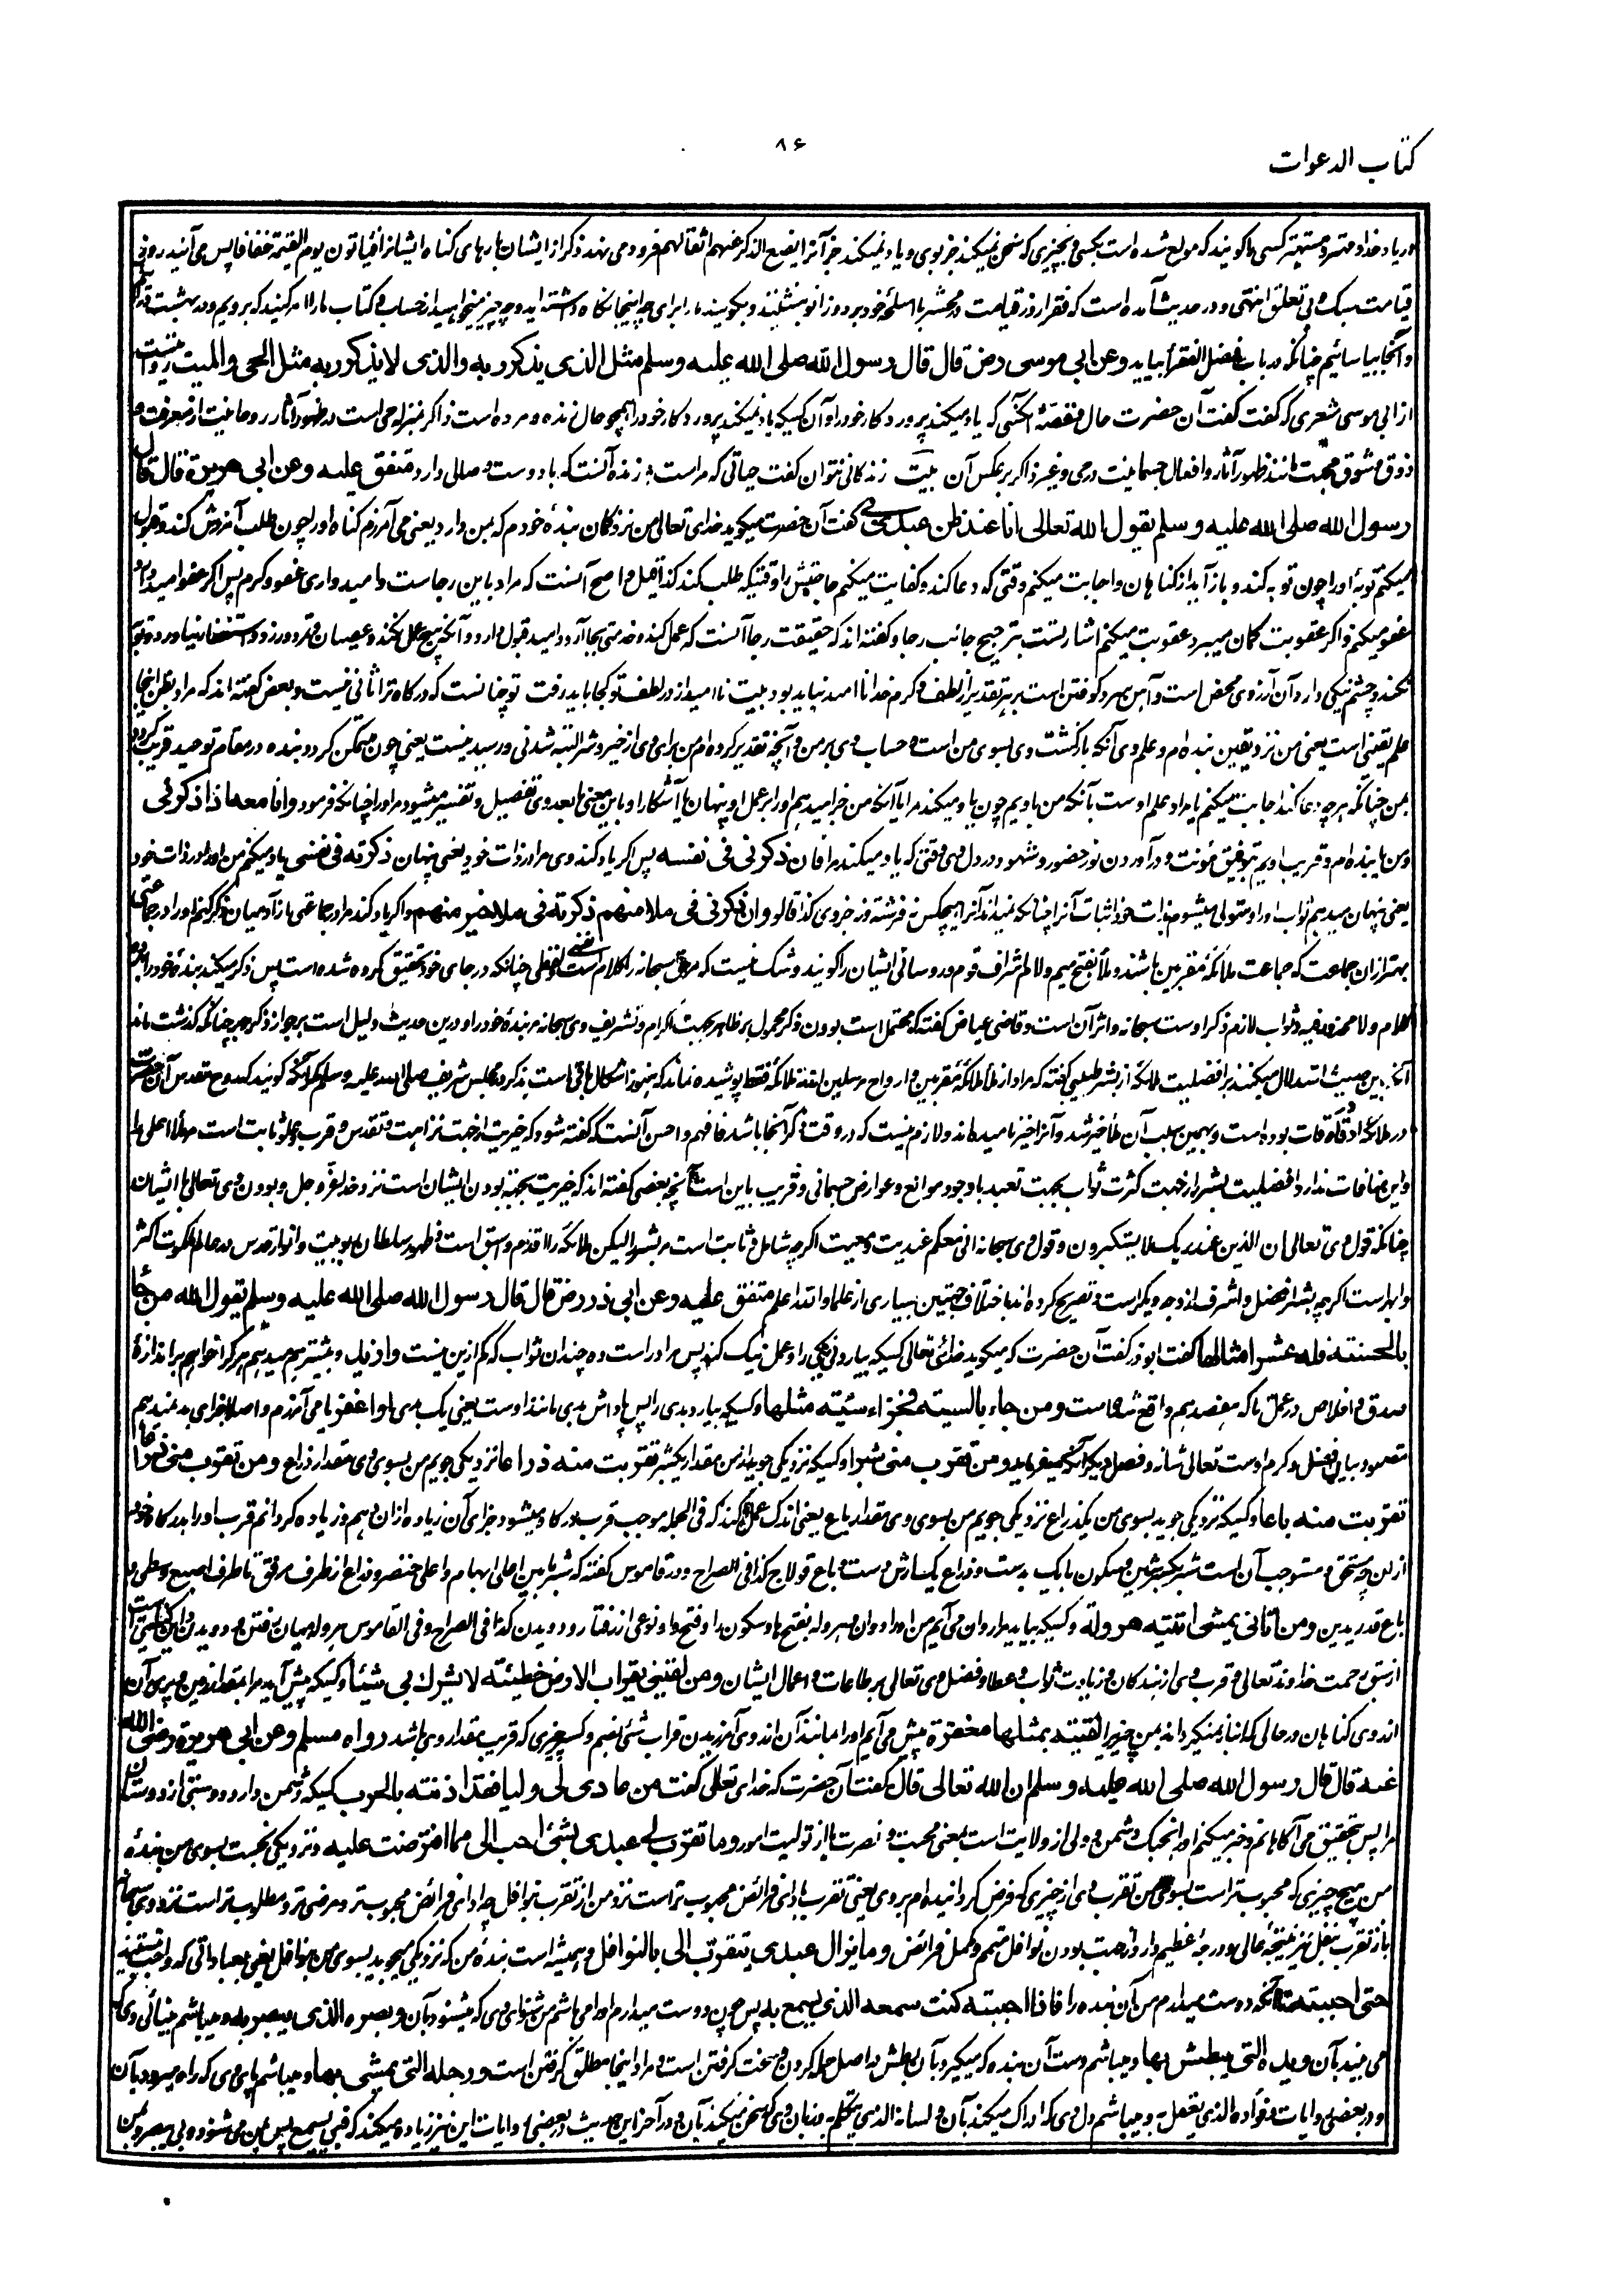 کتاب الدعوات
۸۶
در یاد خدا و مستهتر کسی را گویند که مولع شده است بکسی و بچیزی که سخن نمیکند جز بوی و یاد نمیکند جز آنرا یضع الذکر عنهم اثقالهم فرود می نهد ذکر از ایشان بارهای گناه ایشانرا فیأتون یوم القیمة خفافا پس می آیند روز
قیامت سبک و بی تعلق انتهی و در حدیث آمده است که فقرا روز قیامت در محشر با اسلحه خود بر دو زانو بنشینند و بگویند ما را برای چه اینجا نگاه داشته اید و چه چیز میخواهید از حساب و کتاب ما را امر کنید که برویم و در بهشت
و آنجا بیاسائیم چنانکه در باب فضل الفقرأ بیاید وعن ابی موسی رض قال قال رسول الله صلی الله علیه وسلم مثل الذی یذکر ربه والذی لا یذکر ربه مثل الحی والمیت
از ابی موسی اشعری که گفت گفت آن حضرت حال و قصّهٔ آنکسی که یاد میکند پروردگار خود را و آن کسیکه یاد نمیکند پروردگار خود را همچو حال زنده و مرده است ذاکر بمنزله حی است در ظهور آثار روحانیت از معرفت و
ذوق و شوق و محبت مانند ظهور آثار و افعال جسمانیت در حی و غیر ذاکر بر عکس آن بیت زندگانی نتوان گفت حیاتی که مراست * زنده آنست که با دوست وصالی دارد متفق علیه وعن ابی هریرة قال قال
رسول الله صلی الله علیه وسلم یقول الله تعالی انا عند ظن عبدی بی گفت آن حضرت میگوید خدای تعالی من نزد گمان بندهٔ خودم که بمن دارد یعنی می آمرزم گناه او را چون طلب آمرزش کند و قبول
میکنم توبهٔ او را چون توبه کند و باز آید از گناهان و اجابت میکنم وقتی که دعا کند و کفایت میکنم حاجتش را وقتیکه طلب کند کذا قیل و اصح آنست که مراد باین رجاست و امیدواری عفو و کرم پس اگر عفو امید دارد
عفو میکنم و اگر عقوبت گمان میبرد عقوبت میکنم اشارتست بترجیح جانب رجا و گفته اند که حقیقت رجا آنست که عمل کند و خدمتی بجا آرد و امید قبول دارد و آنکه هیچ عمل نکند و عصیان و تمرد ورزد و استغفار نیاورد و توبه
نکند و چشم نیکی دارد آن آرزوی محض است و آهن سرد کوفتن است بر هر تقدیر از لطف و کرم خدا ناامید نباید بود بیت ناامید از در لطف تو کجا باید رفت تو چنانست که درگاه ترا ثانی نیست و بعضی گفته اند که مراد بظن اینجا
علم یقینی است یعنی من نزد یقین بنده ام و علم وی آنکه بازگشت وی بسوی من است و حساب وی بر من و آنچه تقدیر کرده ام من برای وی از خیر و شر البته شدنی و رسیدنیست یعنی چون متمکن گردد بنده در مقام توحید قریب گردد
بمن چنانکه هر چه دعا کند اجابت میکنم یا مراد علم اوست بآنکه من با ویم چون یاد میکند مرا یا آنکه من خبر امیدهم او را بر عمل او پنهان یا آشکارا و باین معنی ما بعد وی تفصیل و تفسیر میشود مر او را چنانکه فرمود وانا معه اذا ذکرنی
ومن با بنده ام و قریب اویم بتوفیق مؤنت و در آوردن نور حضور و شهود در دل وی وقتی که یاد میکند مرا فان ذکرنی فی نفسه پس اگر یاد کند وی مرا در ذات خود یعنی پنهان ذکرته فی نفسی یاد میکنم من او را در ذات خود
یعنی پنهان میدهم ثواب او را و متولی میشوم بذات خود اثبات آنرا چنانکه نمیداند آنرا هیچکس نه فرشته و نه جز وی کذا قالوا وان ذکرنی فی ملأ ذکرته فی ملأ خیر منهم و اگر یاد کند مرا در جماعتی از آدمیان ذکر کنم او را در جماعتی
بهتر ازان جماعت که جماعت ملائکهٔ مقربین باشند و ملأ بفتح میم و لام اشراف قوم و روسائی ایشان را گویند و شک نیست که مر حق سبحانه را کلام است نفسی و لفظی چنانکه در جای خود تحقیق کرده شده است پس ذکر میکند بندهٔ خود را
کلام و لا محذور فیه و ثواب لازم ذکر اوست سبحانه و اثر آن است و قاضی عیاض گفته که محتمل است بودن ذکر محمول بر ظاهر بجهت اکرام و تشریف وی سبحانه مر بندهٔ خود را و درین حدیث دلیل است بر جواز ذکر جهر چنانکه گذشت
آنکه باین حدیث استدلال میکنند بر افضلیت ملائکه از بشر طیبی گفته که مراد از ملأ ملائکهٔ مقربین و ارواح مرسلین اند نه ملائکه فقط پوشیده نماند که هنوز اشکال باقی است بذکر در مجلس شریف صلی الله علیه وسلم مگر آنکه گویند که روح مقدس آن حضرت
در ملائکه از قات بوده است و بهمین سبب آن ملأ خیر شد و آنرا خیر نامیده اند و لازم نیست که در وقت ذکر آنجا باشد فافهم و احسن آنست که گفته شود که خیریت از جهت نزاهت و تقدس و قرب و علو ثابت است مر ملأ اعلی را
و این منافات ندارد افضلیت بشر از جهت کثرت ثواب بجهت تعبد با وجود موانع و عوارض جسمانی و قریب باین است آنچه بعضی گفته اند که خیریت بجهت بودن ایشان است نزد خدا عز و جل و بودن وی تعالی با ایشان
چنانکه قول وی تعالی ان الذین عند ربک لا یستکبرون و قول وی سبحانه انی معکم عندیت و معیت اگر چه شامل و ثابت است مر بشر را لیکن ملائکه را اقدم و اسبق است و ظهور سلطان ربوبیت و انوار قدس در عالم ملکوت اکثر
و ابهر است اگر چه بشر افضل و اشرف از وجه دیگر است و تصریح کرده اند باختلاف جهتین بسیاری از علما والله اعلم متفق علیه وعن ابی ذر رض قال قال رسول الله صلی الله علیه وسلم یقول الله من جأ
بالحسنة فله عشر امثالها گفت ابوذر گفت آن حضرت که میگوید خدائی تعالی کسیکه بیارد نیکی را و عمل نیک کند پس مر او راست ده چندان ثواب که کم ازین نیست وازید و بیشتر هم میدهم هر کرا خواهم بر اندازهٔ
صدق و اخلاص در عمل تا که هفصد هم واقع شده است ومن جاء بالسیئة فجزاء سیئة مثلها و کسیکه بیارد بدی را پس پاداش بدی مانند اوست یعنی یک بدی او اغفر یا می آمرزم و اصلا جزای بد نمیدهم
مقصود بیان فضل و کرم اوست تعالی شانه و فصل دیگر آنکه میفرماید ومن تقرب منی شبرا و کسیکه نزدیکی جوید از من مقدار یک شبر تقربت منه ذراعا نزدیکی جویم من بسوی وی مقدار ذراع ومن تقرب منی ذراعا
تقربت منه باعا و کسیکه نزدیکی جوید بسوی من یکذراع نزدیکی جویم من بسوی وی مقدار باع یعنی اندک عمل کند که فی الجمله موجب قرب درگاه میشود جزای آن زیاده ازان دهم و زیاده گردانم قرب او را بدرگاه خود
ازان چه مستحق و مستوجب آن است شبر بکسر شین و سکون با یک بدست و ذراع یک ارش دست و باع قولاج کذا فی الصراح و در قاموس گفته که شبر ما بین اعلی ابهام و اعلی خنصر و ذراع از طرف مرفق تا طرف اصبع وسطی
باع قدر یدین ومن اتانی یمشی اتیته هرولة و کسیکه بیاید مرا روان می آیم من او را دوان هروله بفتح ها و سکون را و فتح واو نوعی از رفتار و دویدن کذا فی الصراح و فی القاموس هروله میان رفتن و دویدن
از سبق رحمت خداوند تعالی و قرب وی از بندگان و زیادت ثواب و عطا و فضل وی تعالی بر طاعات و اعمال ایشان ومن لقینی بقراب الارض خطیئة لا یشرک بی شیئا و کسیکه پیش آید مرا بمقدار زمین و پری آن
از روی گناهان در حالی که انباز نمیگرداند بمن چیزی را لقیته بمثلها مغفرة پیش می آیم او را مانند آن از روی آمرزیدن قراب شئی بضم و کسر چیزی که قریب مقدار وی باشد رواه مسلم وعن ابی هریرة رضی الله
عنه قال قال رسول الله صلی الله علیه وسلم ان الله تعالی قال گفت آن حضرت که خدای تعالی گفت من عادی لی ولیا فقد اذنته بالحرب کسیکه دشمن دارد دوستی از دوستان
مرا پس بتحقیق می آگاهانم و خبر میکنم او را بجنگ و دشمن و ولی از ولایت است بمعنی محبت و نصرت یا از تولیت امور وما تقرب الی عبدی بشئ احب الی مما افترضت علیه و نزدیکی نجست بسوی من بندهٔ
من هیچ چیزی که محبوبتر است بسوی من تقرب وی از چیزی که فرض گردانیده ام بروی یعنی تقرب باداء فرائض محبوب تر است نزد من از تقرب بنوافل چه ادای فرائض محبوب تر و مرضی تر و مطلوب تر است نزد وی سبحانه
باز تقرب بنفل نیز نتیجه عالی و درجهٔ عظیم دارد از جهت بودن نوافل متمم و مکمل فرائض وما یزال عبدی یتقرب الی بالنوافل و همیشه است بندهٔ من که نزدیکی میجوید بسوی من بنوافل یعنی بعباداتی که واجب نیستند
حتی احببته تا آنکه دوست میدارم من آن بنده را فاذا احببته کنت سمعه الذی یسمع به پس چون دوست میدارم او را می باشم من شنوای وی که میشنود بآن وبصره الذی یبصر به و میباشم بینائی وی که
می بیند بآن ویده التی یبطش بها و میباشم دست آن بنده که میگیرد بآن بطش در اصل حمله کردن و سخت گرفتن است و مراد اینجا مطلق گرفتن است ورجله التی یمشی بها و میباشم پای وی که راه میرود بآن
و در بعضی روایات وفؤاده الذی یعقل به و میباشم دل وی که ادراک میکند بآن ولسانه الذی یتکلم به و زبان وی که سخن میکند بآن و در آخر این حدیث در بعضی روایات این نیز زیاده میکند که فبی یسمع پس بمن می شنود وبی یبصر و بمن